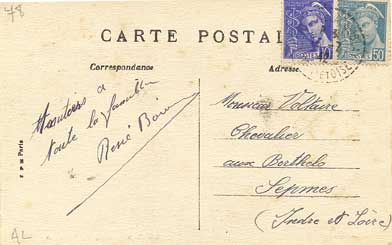 78
CARTE POSTAL
Correspondance
Adresse
toute la famille
René
Monsieur Voltaire
Chevalier
aux Berthelo
Sepmes
(Indre et Loire)
50
Paris
AL